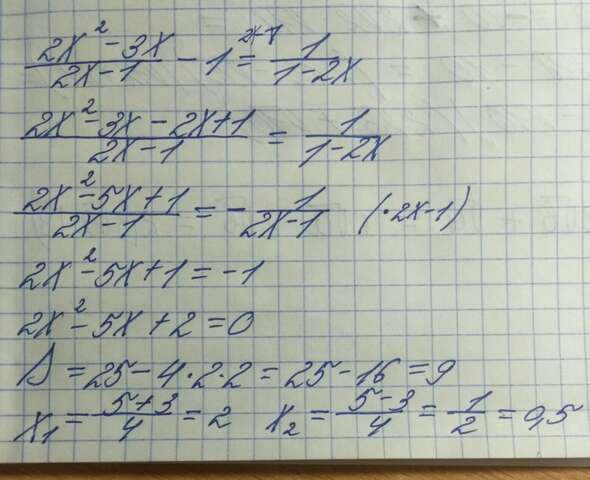 (2x² - 3x)/(2x - 1) - 1 = 1/(1 - 2x)
(2x² - 3x - 2x + 1)/(2x - 1) = 1/(1 - 2x)
(2x² - 5x + 1)/(2x - 1) = - 1/(2x - 1) (· 2x - 1)
2x² - 5x + 1 = -1
2x² - 5x + 2 = 0
D = 25 - 4 · 2 · 2 = 25 - 16 = 9
x₁ = (5 + 3)/4 = 2 x₂ = (5 - 3)/4 = 1/2 = 0,5